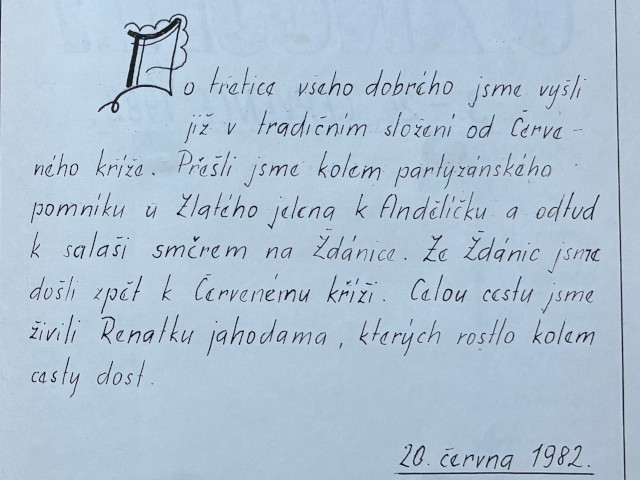 Do třetice všeho dobrého jsme vyšli
již v tradičním složení od Červe-
ného kříže. Přešli jsme kolem partyzánského
pomníku u Zlatého jelena k Andělíčku a odtud
k salaši směrem na Ždánice. Ze Ždánic jsme
došli zpět k Červenému kříži. Celou cestu jsme
živili Renatku jahodama, kterých rostlo kolem
cesty dost.
20. června 1982.